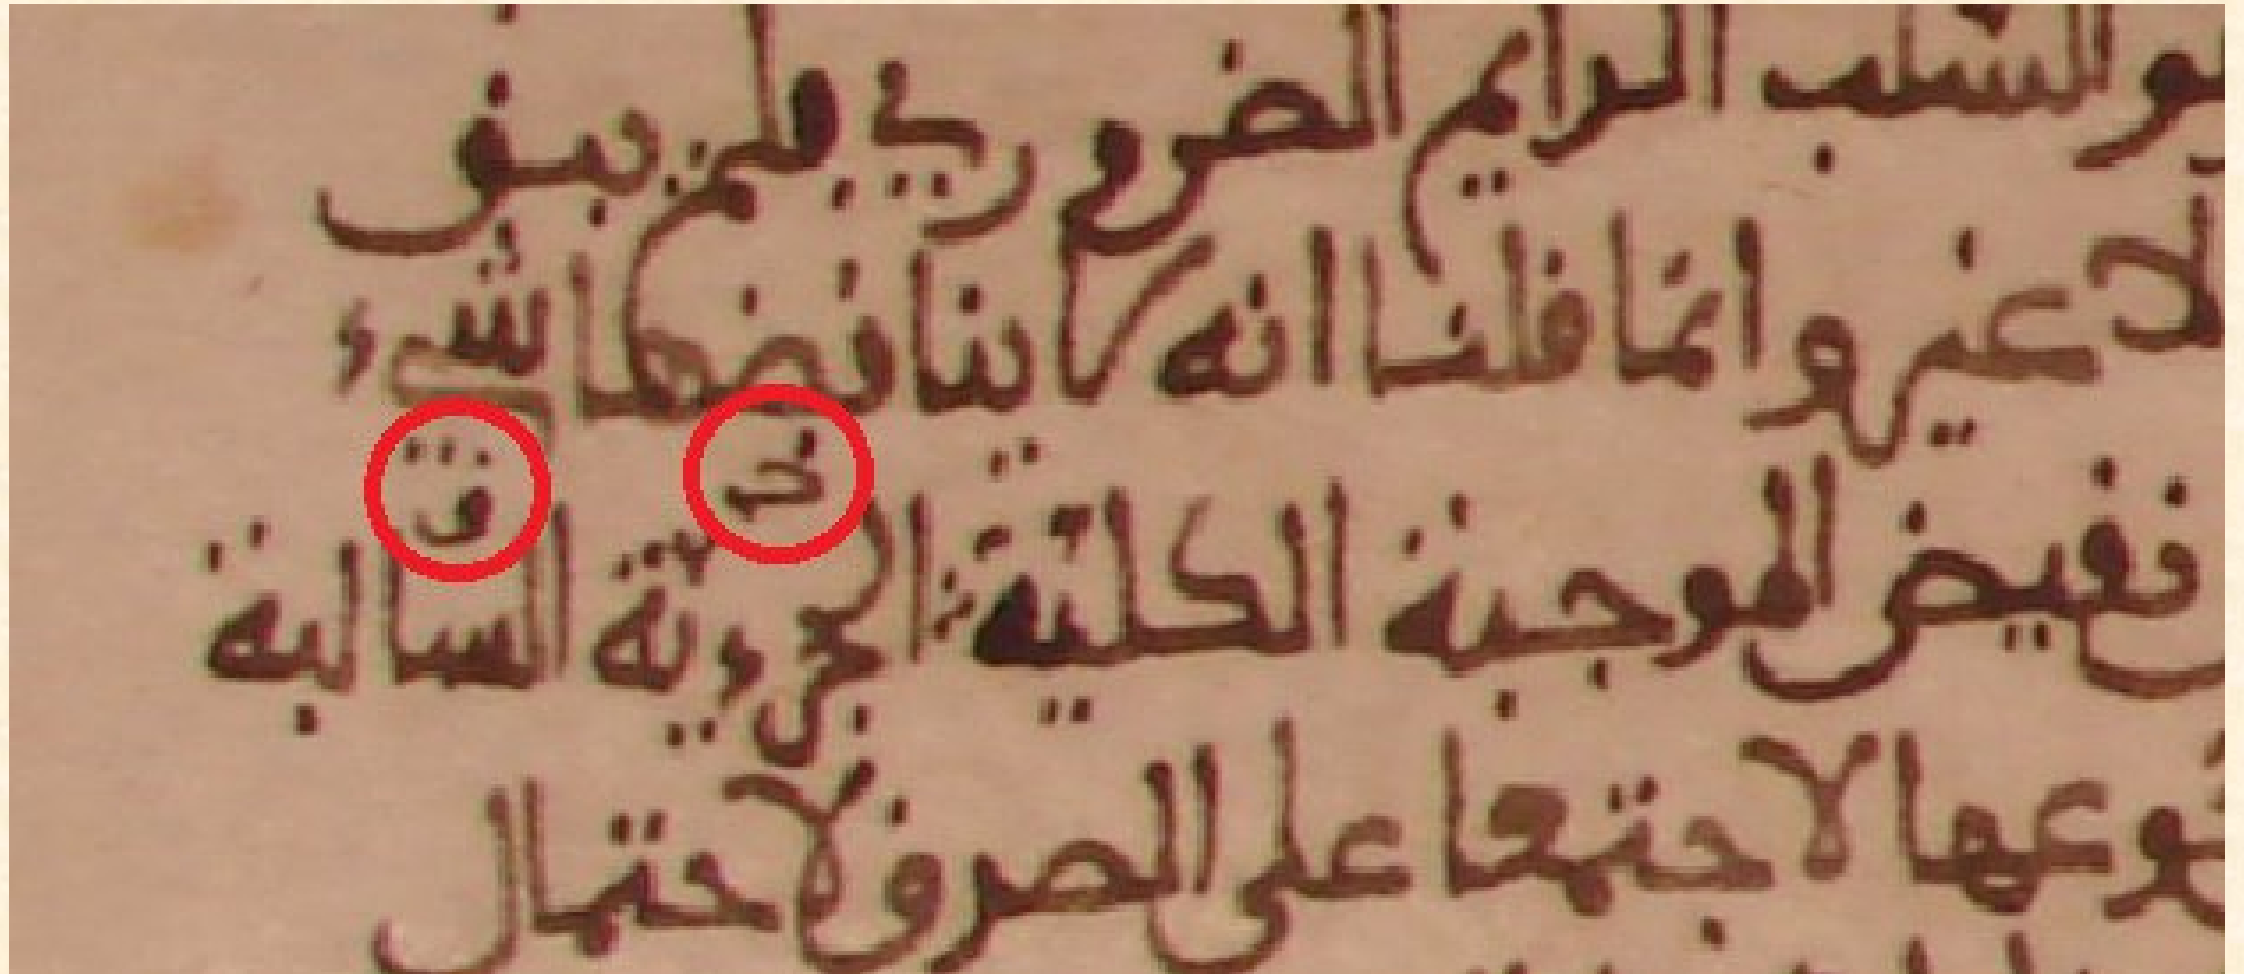 السلب الدايم الضروري فلم يبق
غير وانما قلنا انه لا يناقضها شيء
خ ق
نقيض الموجبة الكلية الجزءية السالبة
لاجتمعا على الصدق لاحتمال